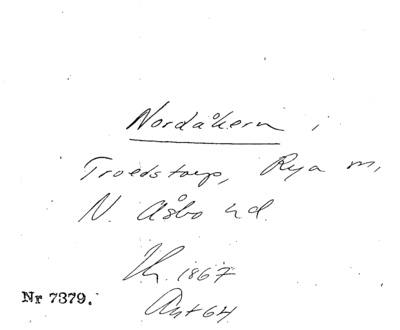 Nordåkern i
Troedstorp, Rya m,
N. Åsbo hd.
1867
Nr 7379.
Akt 64